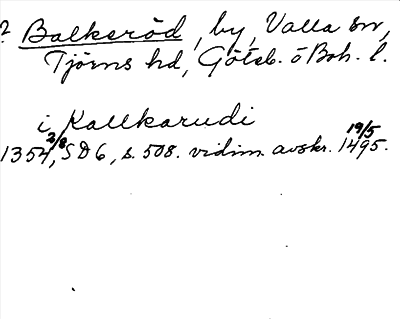 ? Balkeröd, by, Valla sn,
Tjörns hd, Göteb. o Boh. l.
i Kallkarudi
1354 2/8, SD 6, s. 508. vidim. avskr. 19/5 1495.